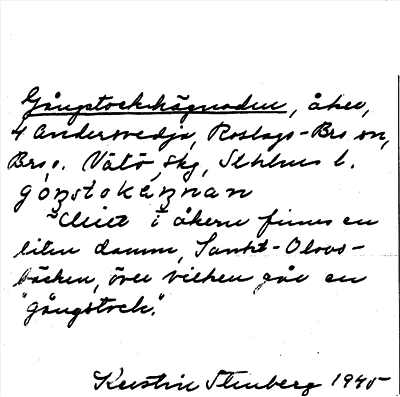 Gångstockhägnaden, åker,
4 Andersvedja, Roslags-Bro sn,
Bro o. Vätö skg, Sthlms l.
góŋstokhä́ŋnan
Mitt i åkern finns en
liten damm, Sankt-Olovs-
bäcken, över vilken går en
"gångstock".
Kerstin Stenberg 1945